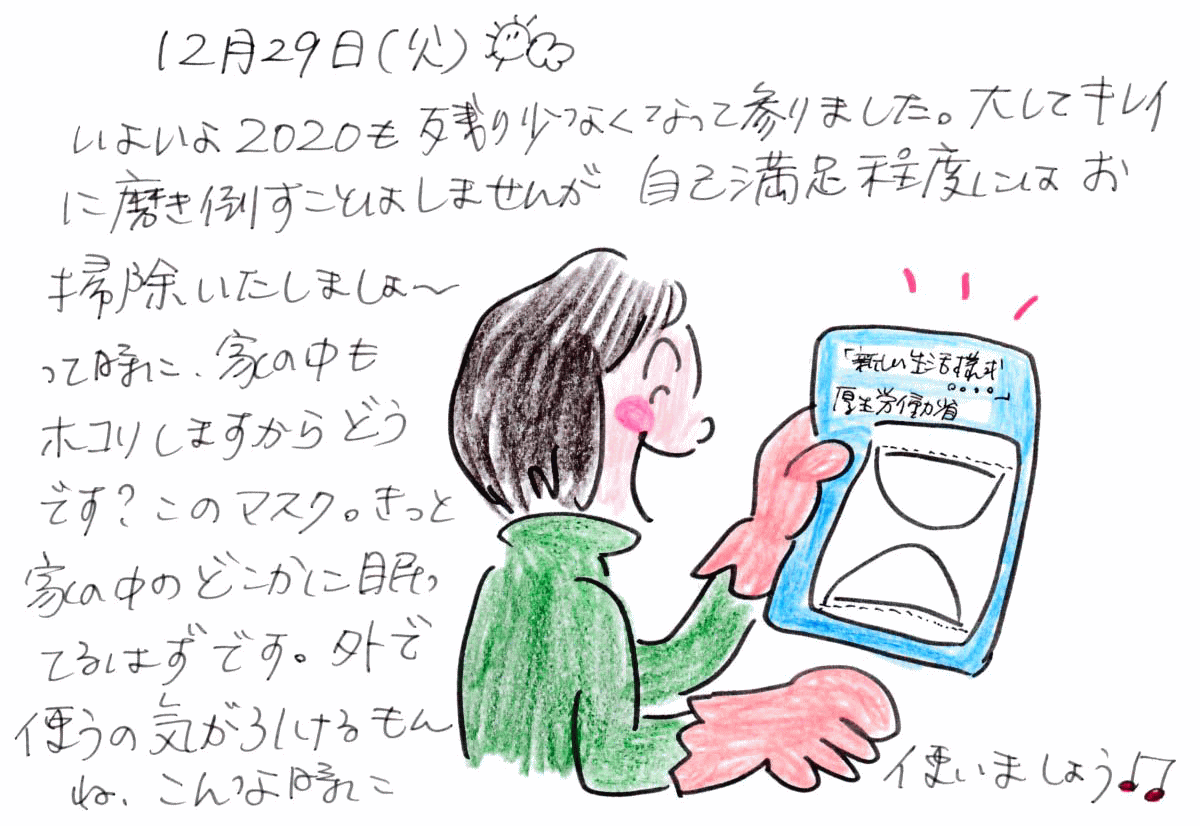 12月29日(火)
いよいよ2020も残り少なくなって参りました。大してキレイ
に磨き倒すことはしませんが 自己満足程度にはお
掃除いたしましょ〜
って時に、家の中も
ホコリしますからどう
です?このマスク。きっと
家の中のどこかに眠っ
てるはずです。外で
使うの気がひけるもん
ね、こんな時に
使いましょう♪♫
「新しい生活様式
。。。。」
厚生労働省